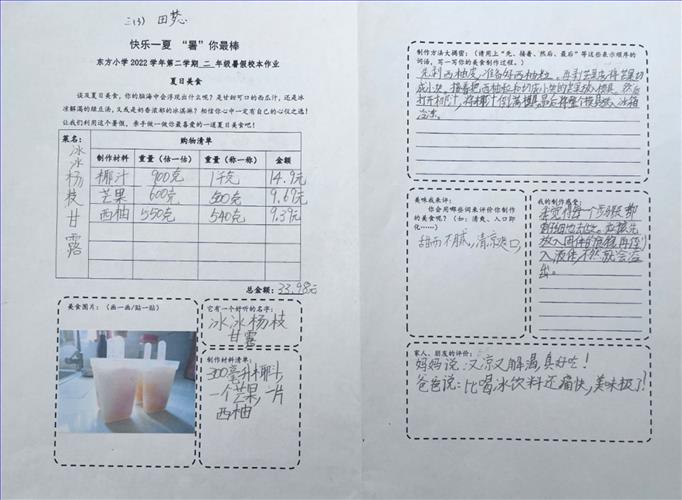 二(3) 田梦
快乐一夏 “暑”你最棒
东方小学 2022 学年第二学期 二 年级暑假校本作业
夏日美食
谈及夏日美食,你的脑海中会浮现出什么呢?是甘甜可口的西瓜汁,还是冰
凉解渴的绿豆汤,又或是奶香浓郁的冰淇淋?相信你心中一定有自己的心仪之选!
让我们利用这个暑假,亲手做一做你最喜爱的一道夏日美食吧!
菜名: 冰冰杨枝甘露
购物清单
制作材料 重量(估一估) 重量(称一称) 金额
椰汁 900克 1千克 14.9元
芒果 600克 500克 9.69元
西柚 550克 540克 9.39元
总金额:33.98元
美食图片:(画一画/贴一贴)
它有一个好听的名字:
冰冰杨枝
甘露
制作材料清单:
300毫升椰汁,
一个芒果,一片
西柚
制作方法大揭密:(请用上“先、接着、然后、最后”等这些表示顺序的
词语,写一写你的美食制作过程。)
先剥西柚皮,准备好西柚粒。再剥芒果皮将芒果切
成小块。接着把西柚粒和切成小块的芒果放入模具。然后
打开椰汁,将椰汁倒满模具,最后将整个模具放入冰箱
冷冻。
美味我来评:
你会用哪些词来评价你制作
的美食呢?(如:清爽、入口即
化……)
甜而不腻,清凉爽口。
我的制作感受:
我觉得每一个步骤都
要仔细
放入固体的食物再倒
入液体,不然就会溢
出。
家人、朋友的评价:
妈妈说:又凉又解渴,真好吃!
爸爸说:比喝冰饮料还痛快,美味极了!